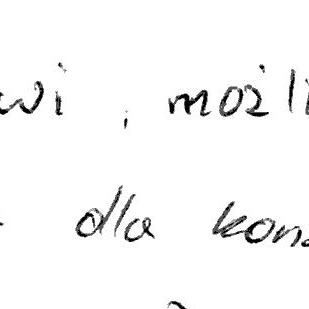 wi , możli
dla kon